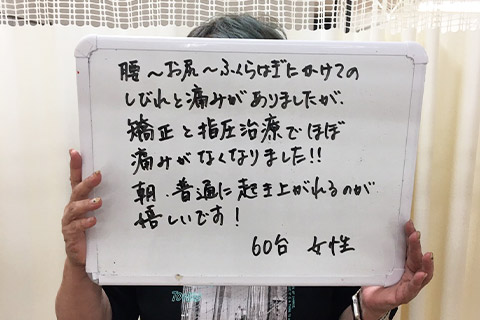 腰～お尻～ふくらはぎにかけての
しびれと痛みがありましたが、
矯正と指圧治療でほぼ
痛みがなくなりました!!
朝、普通に起き上がれるのが
嬉しいです!
60台 女性